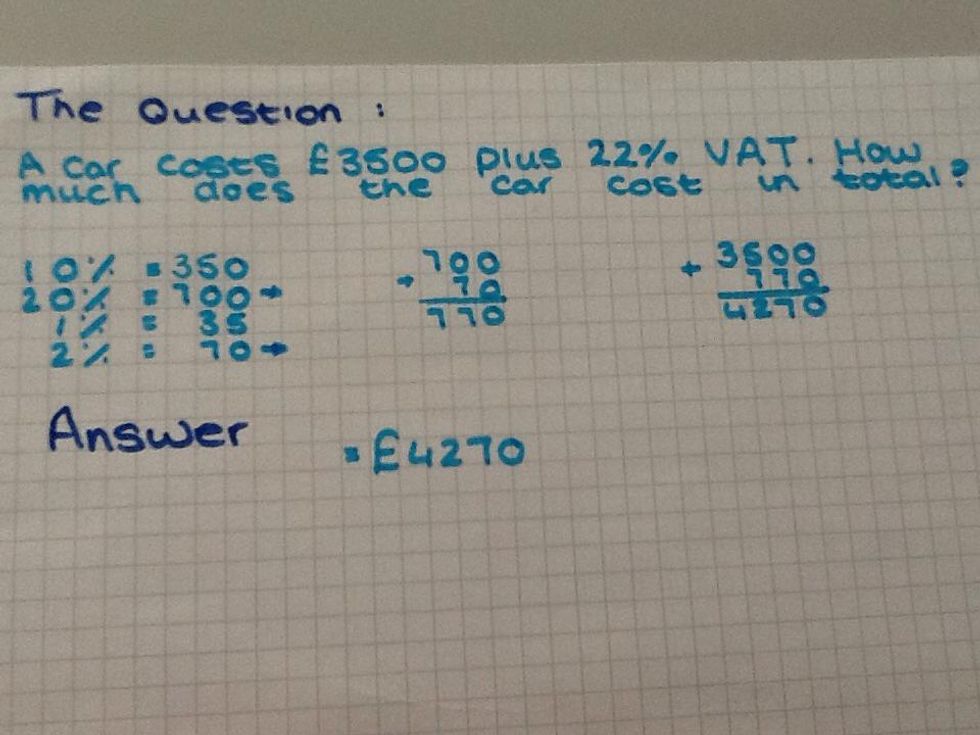 The Question :
A car costs £3500 plus 22% VAT. How
much does the car cost in total?
10% = 350
20% = 700 →
1% = 35
2% = 70 →
700
+ 70
770
3500
+ 770
4270
Answer
= £4270